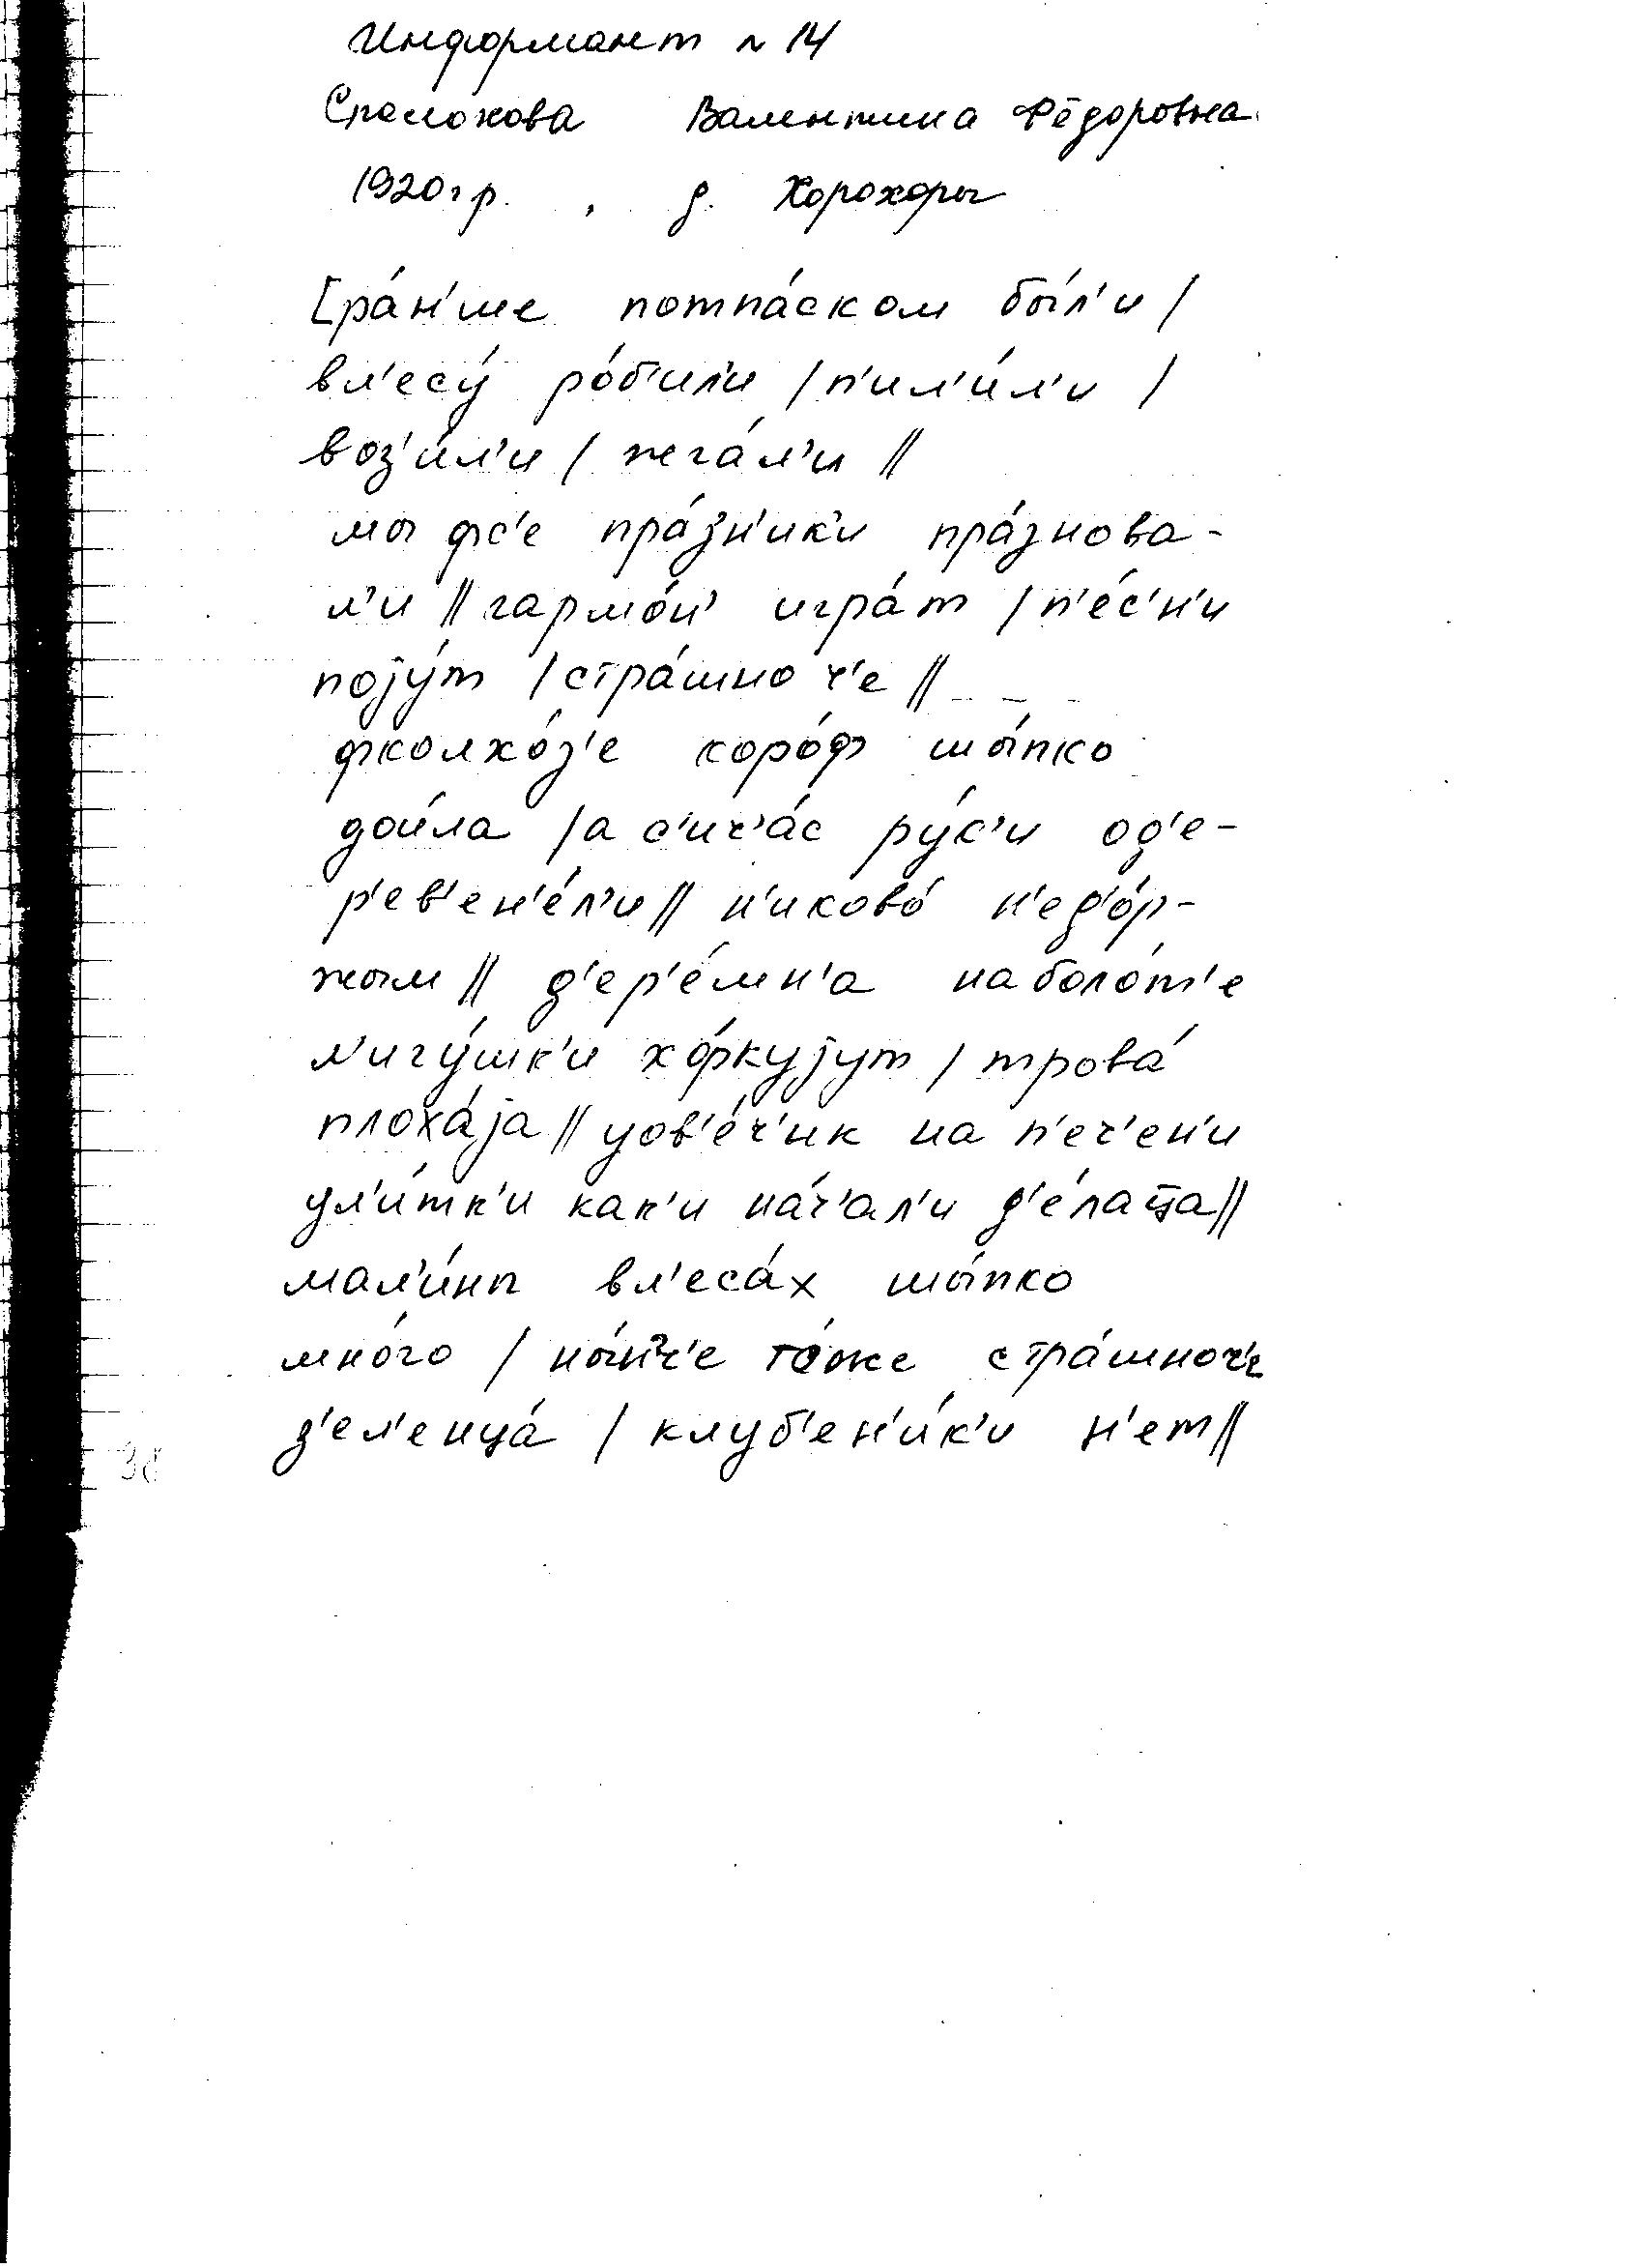 Информант № 14
Валентина Фёдоровна
1920 г р. , д. Хорохоры
[ра́н'ше потпа́ском бы́л'и /
вл'есу́ ро́б'ил'и / п'ил'и́л'и /
воз'и́л'и / жега́л'и //
мы фс'е пра́з'н'ик'и пра́знова-
л'и // гармо́н' игра́т / п'е́с'н'и
поjу́т / стра́шно ч'е //
фколхо́з'е коро́ф шы́пко
дои́ла / а с'ич'а́с ру́к'и од'е-
р'ев'ен'е́л'и // н'иково́ н'ед'о́р-
жым // д'ер'е́мн'а наболо́т'е
л'игу́шк'и хо́ркуjут / трова́
плоха́jа // уов'е́ч'ик на п'еч'ен'и
ул'и́тк'и как'и на́ч'ал'и д'е́лаца //
мал'и́ны вл'еса́х шы́пко
мно́го / ны́н'ч'е то́же стра́шноч'е
з'ел'енца́ / клуб'ен'и́к'и н'ет //
38